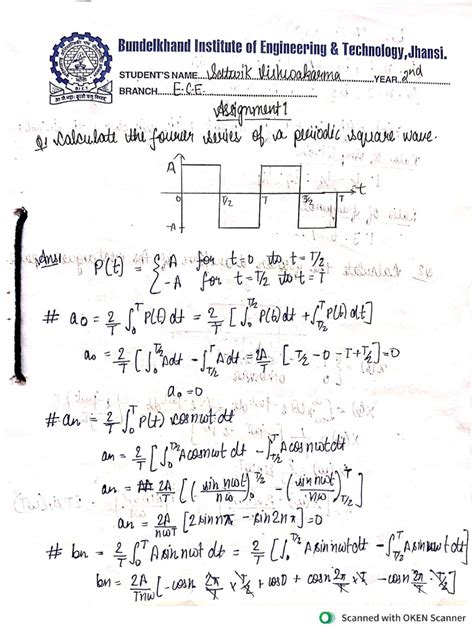 Bundelkhand Institute of Engineering & Technology, Jhansi.
STUDENT'S NAME.... Sattwik Vishwakarma YEAR 2nd
BRANCH...... E.C.E.
Assignment 1
Q1 Calculate the fourier series of a periodic square wave.
A
0 T/2 T 3T/2 T t
-A
Ans: P(t) = { A for t=0 to t=T/2
-A for t=T/2 to t=T
# a₀ = 2/T ∫₀ᵀ P(t) dt = 2/T [∫₀^{T/2} P(t) dt + ∫_{T/2}^T P(t) dt]
a₀ = 2/T [∫₀^{T/2} A dt - ∫_{T/2}^T A dt = 2A/T [T/2 - 0 - T + T/2] = 0
a₀ = 0
# an = 2/T ∫₀ᵀ P(t) cosnωt dt
an = 2/T [∫₀^{T/2} A cosnωt dt - ∫_{T/2}^T A cosnωt dt
an = 2A/T [(sin nωt/nω)₀^{T/2} - (sin nωt/nω)_{T/2}^T]
an = 2A/nωT [2 sin nπ - sin 2nπ] = 0
# bn = 2/T ∫₀ᵀ A sin nωt dt = 2/T [∫₀^{T/2} A sin nωt dt - ∫_{T/2}^T A sin nωt dt
bn = 2A/Tnω [-cosn 2π/T × T/2 + cos0 + cosn 2π/T × T - cosn 2π/T × T/2]
Scanned with OKEN Scanner